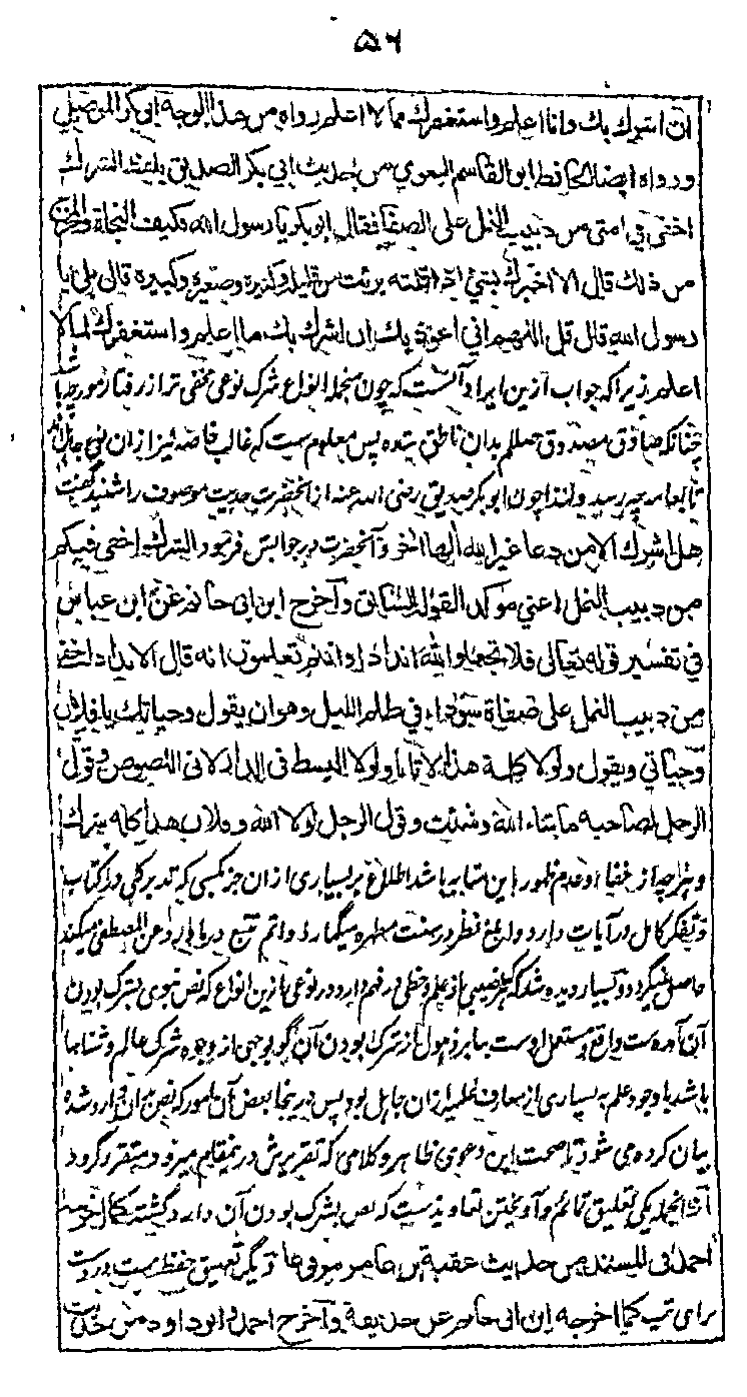 ۵۶
ان اشرك بك وانا اعلم واستغفرك مما لا اعلم رواه من هذا الوجه ابو بكر الموصلي
ورواه ايضا الحافظ ابو القاسم البغوي من حديث ابي بكر الصديق بلفظ الشرك
اخفى في امتي من دبيب النمل على الصفا فقال ابو بكر يا رسول الله فكيف النجاة والمخرج
من ذلك قال الا اخبرك بشيء اذا قلته برئت من قليله وكثيره وصغيره وكبيره قال بلى يا
رسول الله قال قل اللهم اني اعوذ بك ان اشرك بك وانا اعلم واستغفرك لما لا
اعلم زیرا که جواب ازین ایراد آنست که چون منجمله انواع شرک نوعی مخفی تر از رفتار مورچه باشد
چنانکه صادق مصدوق صلعم بدان ناطق شده پس معلوم ست که غالب خاصه نیز ازان فی
تا بعامه چه رسد ولهذا چون ابو بکر صدیق رضی الله عنه از آنحضرت حدیث موصوف را شنید گفت
هل الشرك الا من دعا مع الله الها اخر وآنحضرت در جوابش فرمود الشرك اخفى فيكم
من دبيب النمل اعني موكد القول السابق وأخرج ابن ابي حاتم عن ابن عباس
في تفسير قوله تعالى فلا تجعلوا لله اندادا وانتم تعلمون انه قال الانداد اخفى
من دبيب النمل على صفاة سوداء في ظلم الليل وهو ان يقول وحياتك يا فلان
وحياتي ويقول ولولا كلبة هذا لاتانا ولولا البسط في الدار لاتى اللصوص وقول
الرجل لصاحبه ما شاء الله وشئت وقول الرجل لولا الله وفلان هذا كله شرك
وهر چه از خفا و عدم ظهور باین مثابه باشد اطلاع بر بسیاری ازان جز کسی که تدبر کلی در کتاب
وتفکر کامل در آیات دارد و ابلغ نظر در سنت مطهره میگمارد و اتم تتبع در ما ورد عن المصطفی میکند
حاصل نمیگردد و بسیار دیده شد که هر نصیبی از علم و حظی در فهم دارد در نوعی ازین انواع که نص نبوی بشرک بودن
آن آمده ست واقع و مستعمل اوست بنابر ذهول از شرک بودن آن گو بوجهی از وجوه شرک عالم و شناسا
باشد با وجود علم به بسیاری از معارف علمیه ازان جاهل بود پس درینجا بعض آن امور که نص بران وارد شده
بیان کرده می شود تا صحت این دعوی ظاهر و کلامی که تقریرش درینمقام میرود متقرر گردد
ازانجمله یکی تعلیق تمائم و آویختن تعاویذ ست که نص بشرک بودن آن وارد گشته كما اخرجه
احمد في المسند من حديث عقبة بن عامر مرفوعا دیگر تعلیق خیط ست در دست
برای تب كما اخرجه ابن ابي حاتم عن حذيفة وأخرج احمد وابو داود من حديث